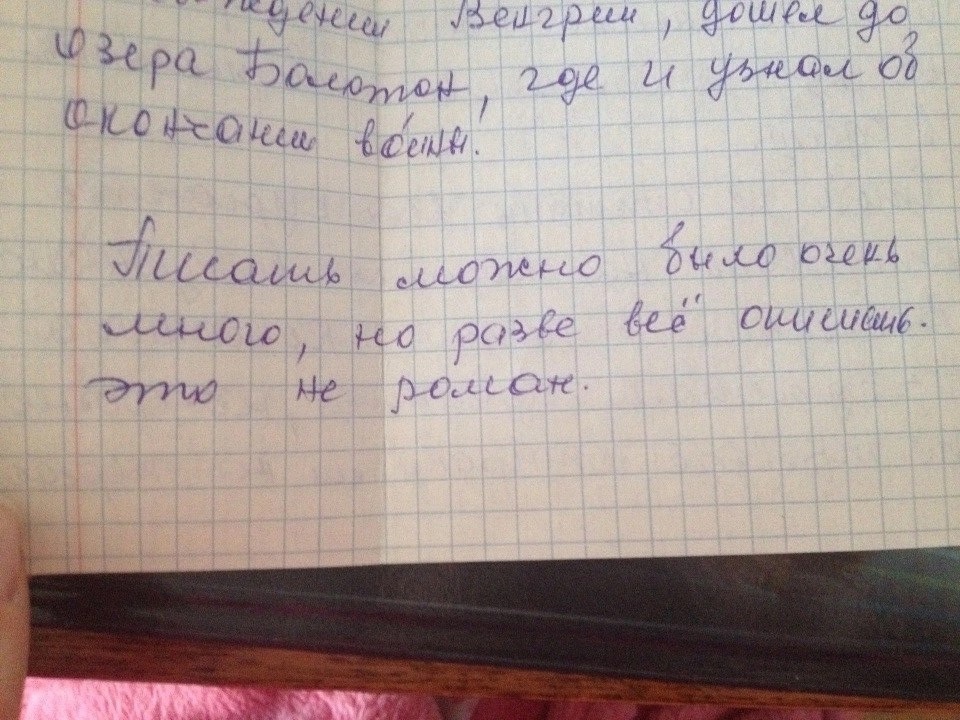 Венгрии, дошел до
озера Болотон, где и узнал об
окончании войны.
Писать можно было очень
много, но разве всё опишешь.
это не роман.